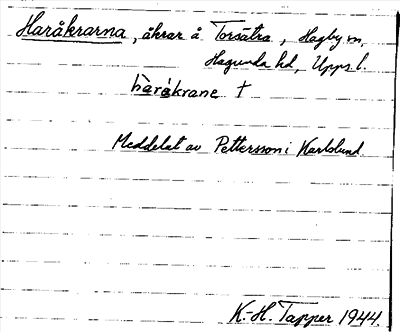 Haråkrarna, åkrar å Torsätra, Hagby sn,
Hagunda hd, Upps l.
hàråkrane †
Meddelat av Pettersson i Karlslund.
K-H. Tapper 1944.